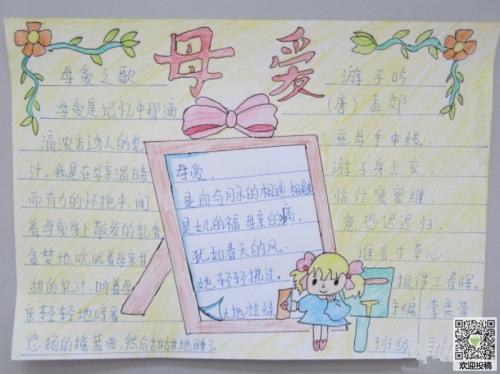 母爱
母爱之歌
母爱是记忆中那滴
滴浓香诱人的乳
汁。我是在母亲温暖
而有力的怀抱中,闻
着母爱身上散发的乳香
含笑地吮吸着母亲甘
甜的乳汁,听着母
亲轻轻地哼着
悠扬的摇篮曲,然后甜甜地睡了
母爱,
是血与月永的相通
是女儿的福 母亲的病,
犹如春天的风
她轻轻拂过,
大地披绿
游子吟
(唐)孟郊
慈母手中线,
游子身上衣。
临行密密缝,
意恐迟迟归。
谁言寸草心,
报得三春晖。
主编 李奕萱
班级
欢迎投稿